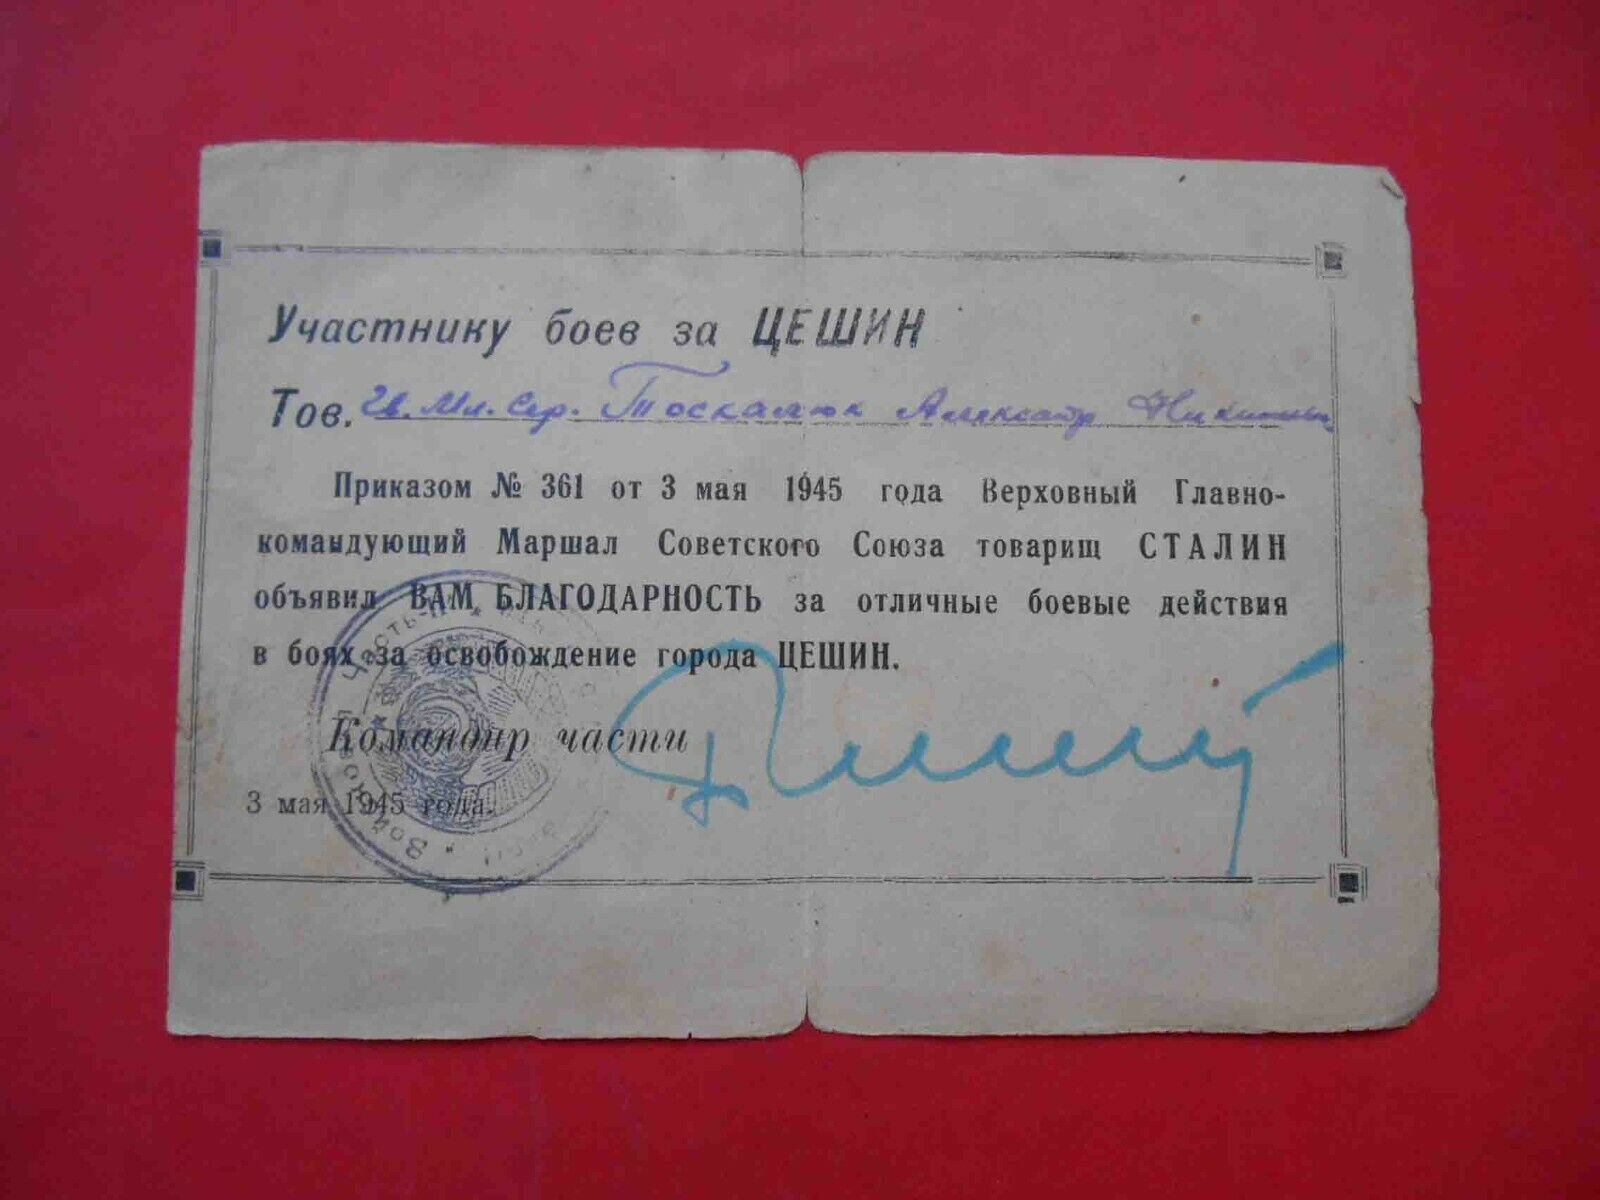 Участнику боев за ЦЕШИН
Тов. Гв. Мл. Сер. Тоскалюк Александр
Приказом № 361 от 3 мая 1945 года Верховный Главно-
командующий Маршал Советского Союза товарищ СТАЛИН
объявил ВАМ БЛАГОДАРНОСТЬ за отличные боевые действия
в боях за освобождение города ЦЕШИН.
Командир части
3 мая 1945 года.